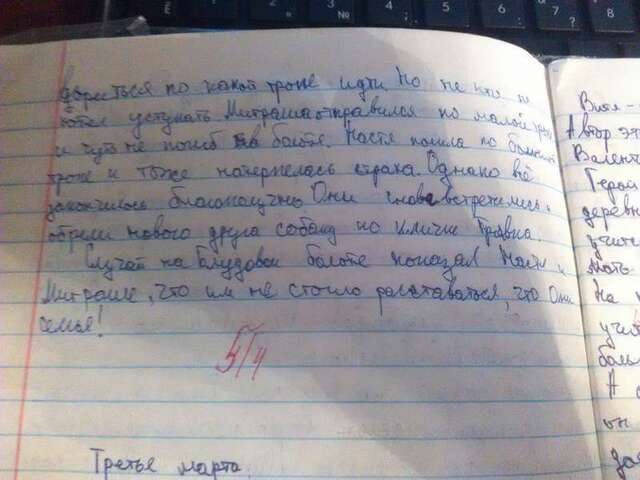 по какой тропе идти Но не кто не
хотел уступать Митраша отправился по малой тропе
и чуть не погиб в болоте. Настя пошла по большой
тропе и тоже натерпелась страха. Однако всё
закончилось благополучно Они снова встретились,
обрели нового друга собаку по кличке Травка.
Случай на Блудовом болоте показал Насти и
Митраше, что им не стоило расставаться, что Они
семья!
5/4
Третье марта.
Автор
Валент
Герои
деревн
учит
мать
На
учи
А
он